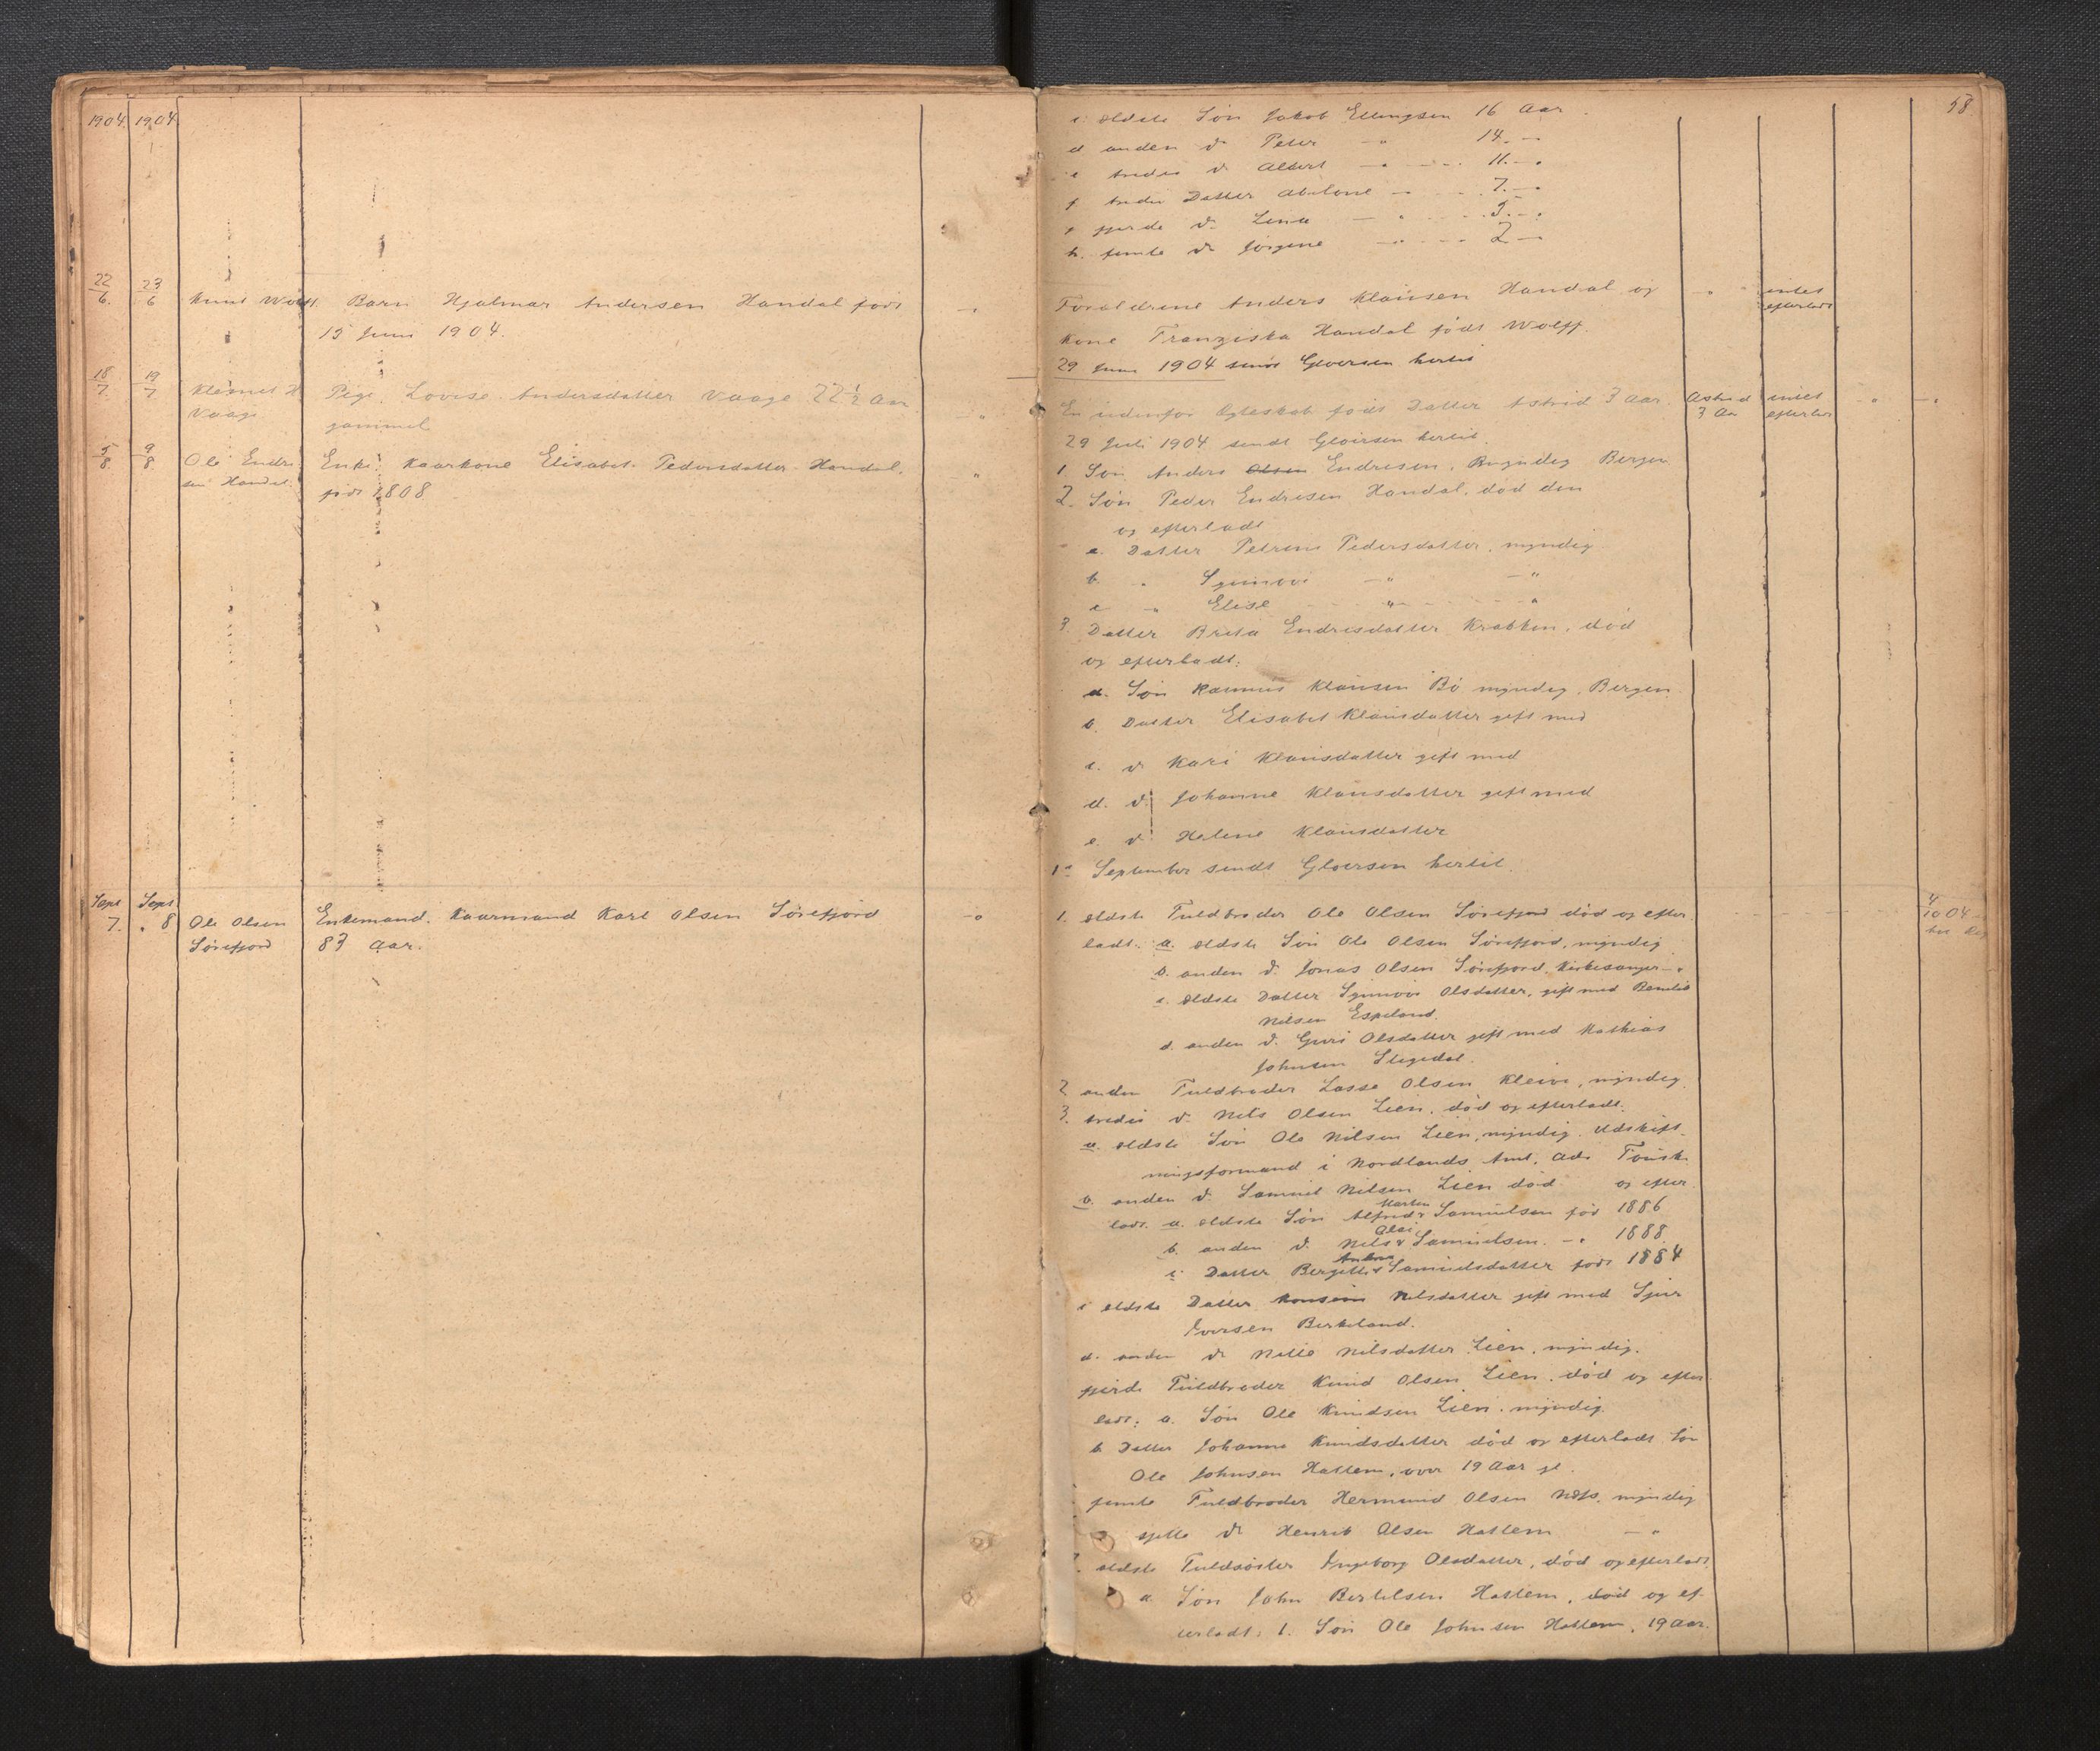 1904. 1904.
22/6. 23/6 Knut Wolff. Barn Hjalmar Andersen Handal født
15 Juni 1904.
18/7 19/7 Klemet H Pige. Lovise Andersdatter Vaage 22 1/2 Aar
Vaage gammel
5/8. 9/8. Ole Endre- Enke. Kaarkone Elisabet Pedersdatter Handal.
sen Handal. født 1808.
Sept Sept
7. " 8 Ole Olsen Enkemand. Kaarmand Karl Olsen Sörefjord
Sörefjord 83 Aar.
58
c. ældste Søn Jakob Ellingsen 16 Aar.
d anden do Peter — " 14. —
e tredie do Albert — " 11. — "
f tredie Datter Abelone — 7. — "
g fjerde do Lina — " 5. — "
h. femte do Jørgine — " 2 —
Forældrene Anders Klausen Handal og — " intet
efterladt
Kone Franziska Handal født Wolff.
29 Juni 1904 sendt Gloersen hertil
En udenfor Ægteskab født Datter Astrid 3 Aar. Astrid intet — " — "
3 Aar efterlat
29 Juli 1904 sendt Gloersen hertil.
1. Søn Anders Olsen Endresen, Myndig Bergen
2. Søn Peder Endresen Handal, død den
og efterladt
a. Datter Petrine Pedersdatter, myndig
b. " Synnøve — " — "
c " Elise " "
3. Datter Brita Endresdatter Krakken, död
og efterladt:
a. Søn Rasmus Klausen Bö myndig, Bergen
b. Datter Elisabet Klausdatter gift med
c. do Kari Klausdatter gift med
d. do Johanne Klausdatter gift med
e. do Helene Klausdatter
1ste September sendt Gloersen hertil.
1. ældste Fuldbroder Ole Olsen Sörefjord död og efter- 4/10 04
ladt: a. ældste Søn Ole Olsen Sörefjord, myndig
b. anden do. Jonas Olsen Sörefjord. Kirkesanger — "
c. ældste Datter Synnöve Olsdatter, gift med
Nilsen Espeland.
d. anden do. Guri Olsdatter gift med Mathias
Johnsen Stegedal.
2 anden Fuldbroder Lasse Olsen Kleive, myndig.
3. tredie do Nils Olsen Lien, död og efterladt.
a. ældste Søn Ole Nilsen Lien, myndig. Udskift-
ningsformand i Nordlands Amt, Adr.
b. anden do. Samuel Nilsen Lien död og efter-
Martin
ladt. a. ældste Søn Alfred Samuelsen fød 1886
Olai
b. anden do. Nils Samuelsen. — " 1888.
c Datter Bergitte Samuelsdatter født 1884
c ældste Datter Nilsdatter gift med Sjur
Iversen Birkeland.
d. anden do Nille Nilsdatter Lien, myndig.
fjerde Fuldbroder Knud Olsen Lien, död og efter-
ladt: a. Søn Ole Knudsen Lien. myndig.
b. Datter Johanna Knudsdatter död og efterladt Søn
Ole Johnsen Hatlem, over 19 Aar gl.
femte Fuldbroder Hermund Olsen Næss, myndig
sjette do Henrik Olsen Hatlem — "
ældste Fuldsöster Ingeborg Olsdatter, död og efterladt
a. Søn John Bertelsen Hatlem, död og ef-
terladt. 1. Søn Ole Johnsen Hatlem, 19 Aar.